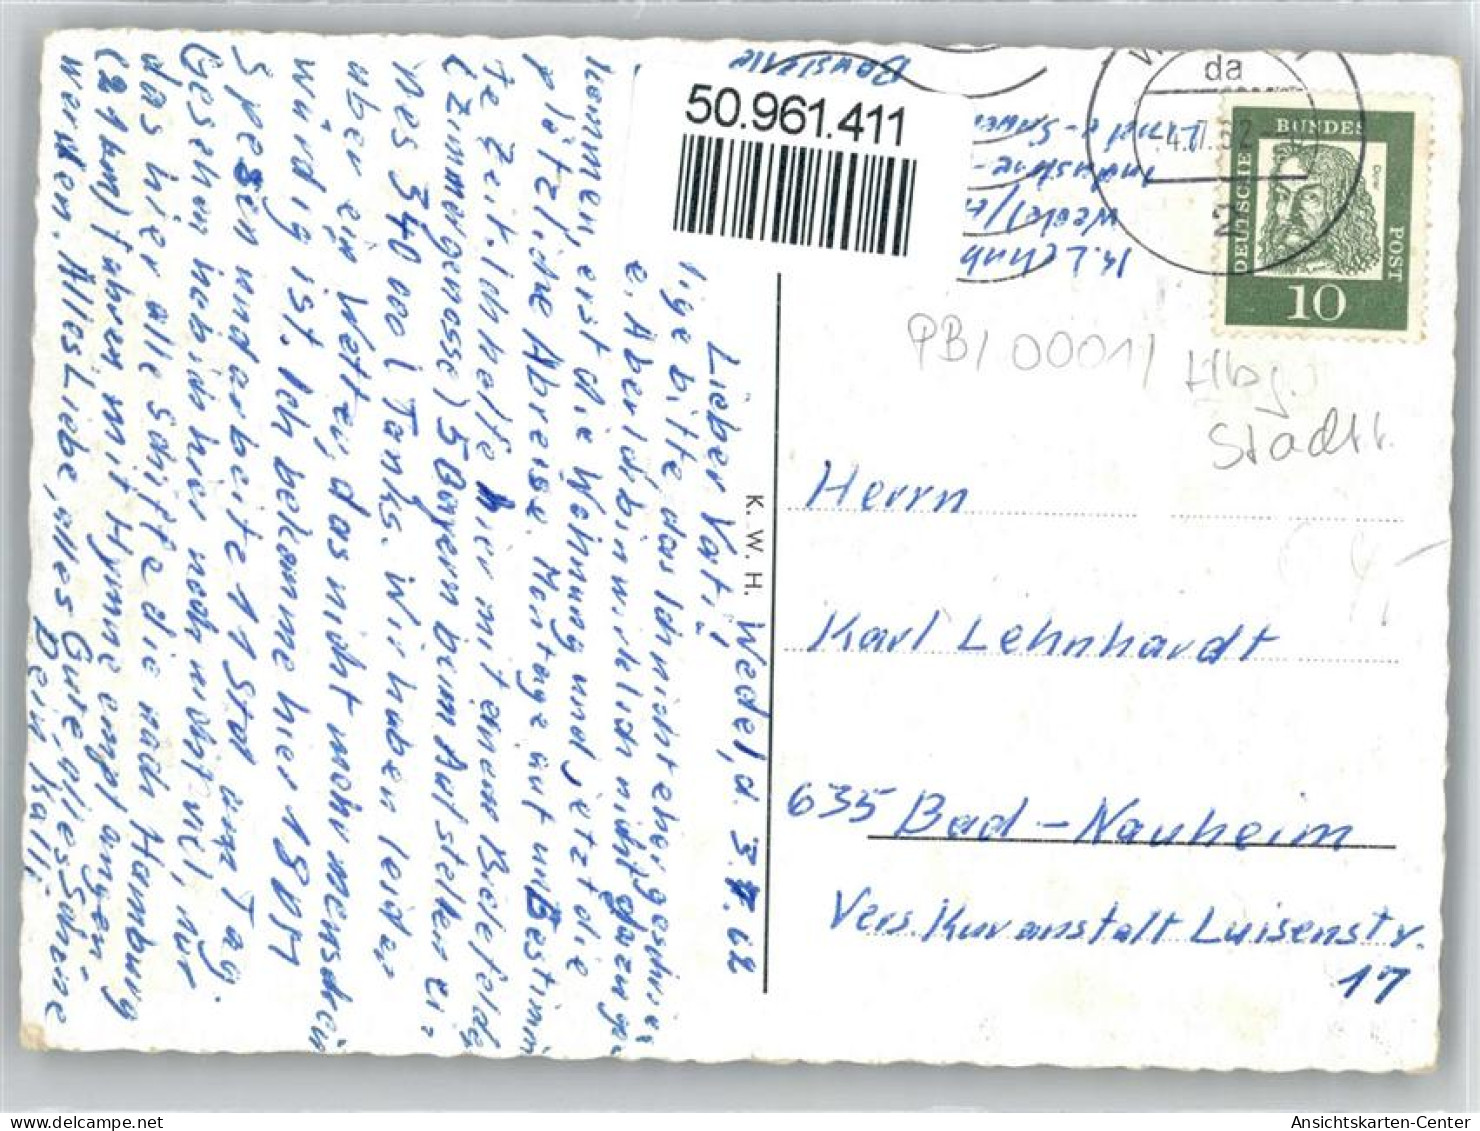 Baustelle
Wedel/H
50.961.411
da
4.7.62
2
DEUTSCHE
BUNDES
POST
Dürer
10
PB/0001/
Stadtt.
K. W. H.
Wedel, d. 3.7.62
Lieber Vati!
bitte das ich nicht eher geschrie-
Aber ich bin wirklich nicht dazu ge-
kommen, erst die Wohnung und jetzt die
plötzliche Abreise. Montage auf unbestimm
te Zeit. Ich helfe hier mit einem Bielefelder
(Zimmergenosse) 5 Bayern beim Aufstellen ei-
nes 340 000 l Tanks. Wir haben leider
aber ein Wetter, das nicht mehr menschen
würdig ist. Ich bekomme hier 18 DM
Spesen und arbeite 11 Std am Tag.
Gesehen habe ich hier noch nicht viel, nur
das hier alle Schiffe die nach Hamburg
(21 km) fahren mit Hymne empfangen
werden. Alles Liebe, alles Gute, grüsse
Dein Kalli
Herrn
Karl Lehnhardt
635 Bad-Nauheim
Vers. Kuranstalt Luisenstr.
17
Ansichtskarten-Center